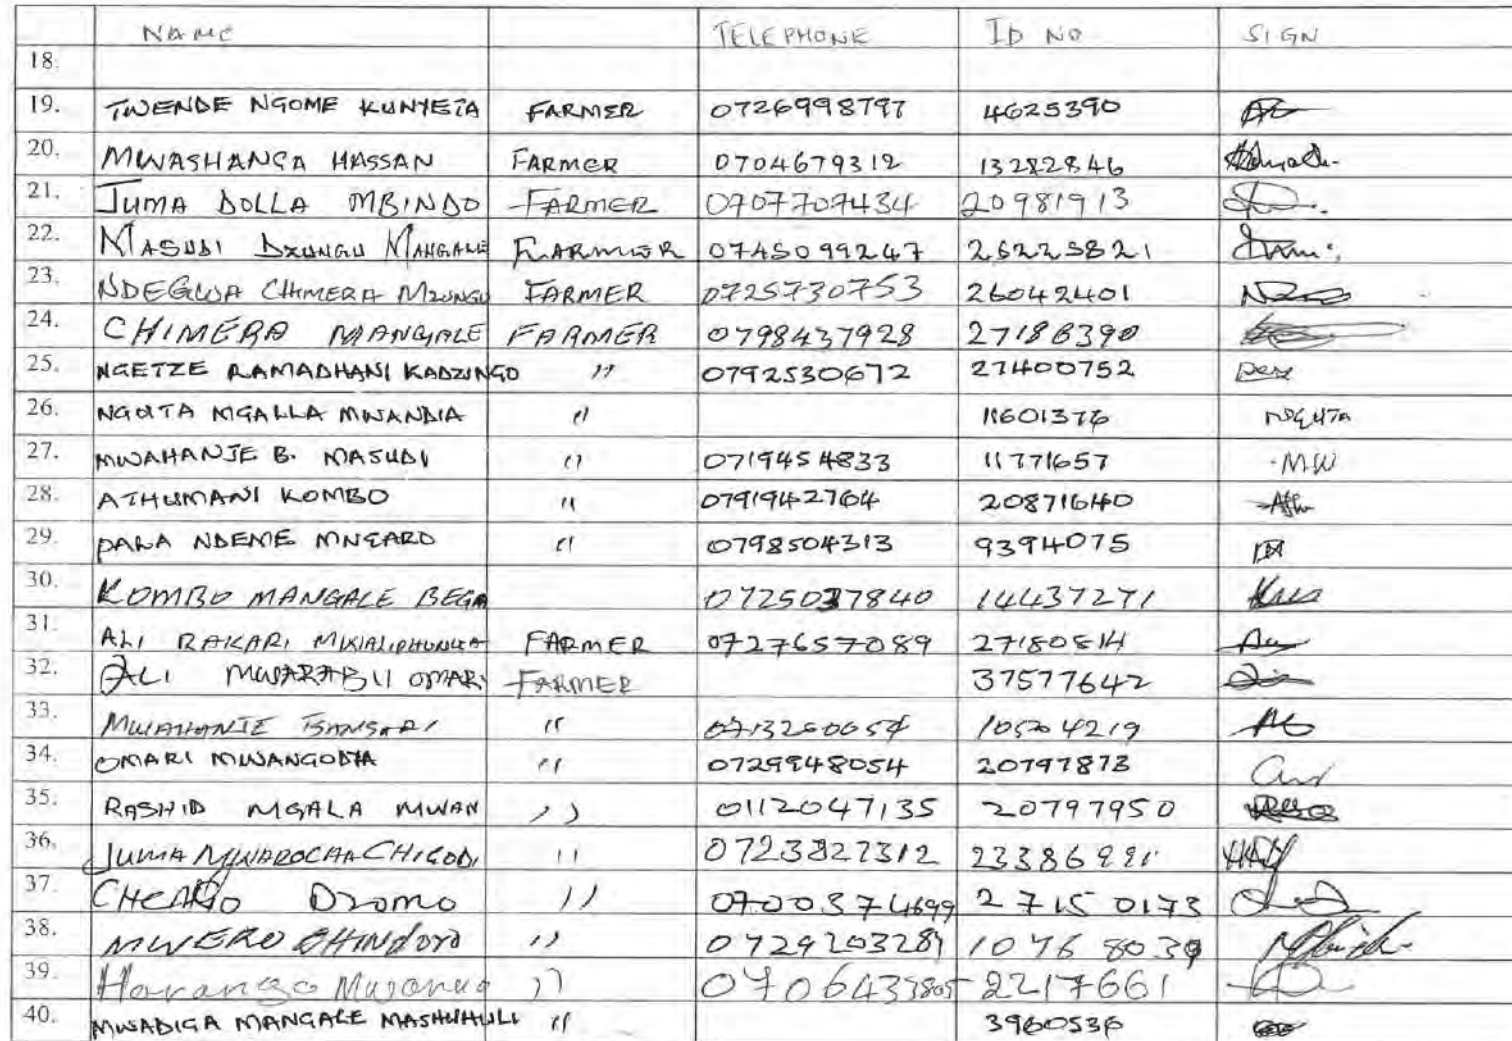 NAME TELEPHONE ID NO SIGN
18.
19. TWENDE NGOME KUNYETA FARMER 0726998797 4625390
20. MWASHANGA HASSAN FARMER 0704679312 13282846
21. JUMA DOLLA MBINDO FARMER 0707707434 20981913
22. MASUDI DZUNGU MANGALE FARMER 0745099247 26225821
23. NDEGWA CHIMERA MZUNGU FARMER 0725730753 26042401
24. CHIMERA MANGALE FARMER 0798437928 27186390
25. NGETZE RAMADHANI KADZINGO " 0792530672 27400752
26. NGUTA MGALLA MWANDIA " 11601376
27. MWAHANJE B. MASUDI " 0719454833 11771657 MW
28. ATHUMANI KOMBO " 0791942764 20871640
29. DARA NDEME MNGARO " 0798504313 9394075
30. KOMBO MANGALE BEGA 0725037840 14437271
31. ALI RAKARI FARMER 0727657089 27180814
32. ALI MWARABU OMARI FARMER 37577642
33. MWAHANJE " 10504219
34. OMARI " 0729948054 20797873
35. RASHID MGALA MWAN " 0112047135 20797950
36. JUMA MWAROCHA CHIGODI " 0723827312
37. CHEARO DZOMO " 0700374699 27150173
38. MWERO " 0729203289
39. Haranga " 22177661
40. MWADIGA MANGALE MASHUHULI " 3960536